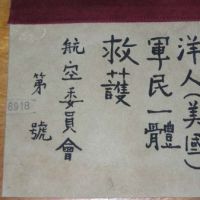 洋人(美國)
軍民一體
救護
航空委員會
第 號
8918